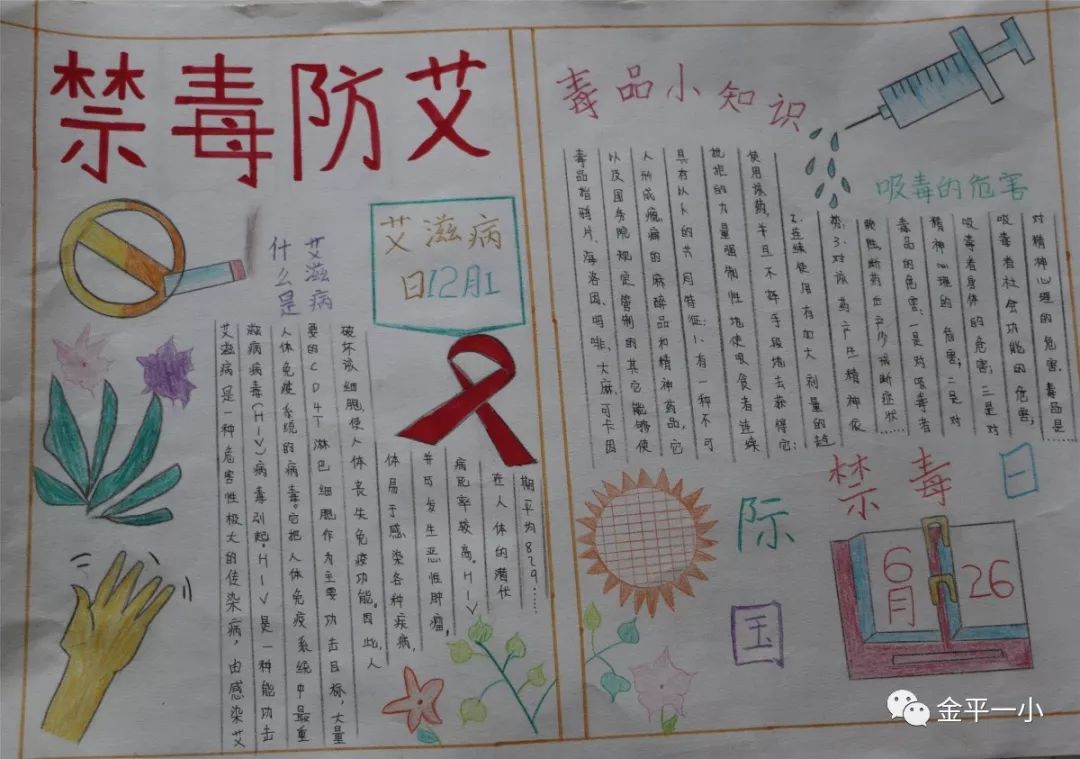 禁毒防艾
艾滋病
日12月1
什么是
艾滋病
艾滋病是一种危害性极大的传染病，由感染艾
滋病病毒(HIV)病毒引起。HIV是一种能功击
人体免疫系统的病毒。它把人体免疫系统中最重
要的CD4T淋巴细胞作为主要功击目标，大量
破坏该细胞，使人体丧失免疫功能。因此，人
体易于感染各种疾病，
并可发生恶性肿瘤，
病死率较高。HIV
在人体的潜伏
期平均829……
毒品小知识
毒品指鸦片、海洛因、吗啡、大麻、可卡因
以及国务院规定管制的其它能够使
人形成瘾癖的麻醉品和精神药品，它
具有以下的共同特征：1、有一种不可
抗拒的力量强制性地使吸食者连续
使用该药，并且不择手段地去获得它；
2.连续使用有加大剂量的趋
势；3.对该药产生精神依
赖性，断药后产 断症状……
吸毒的危害
毒品的危害：一是对吸毒者
精神心理的危害；二是对
吸毒者身体的危害；三是对
吸毒者社会功能的危害，
对精神心理的危害.毒品是……
国际禁毒日
6月
26
金平一小